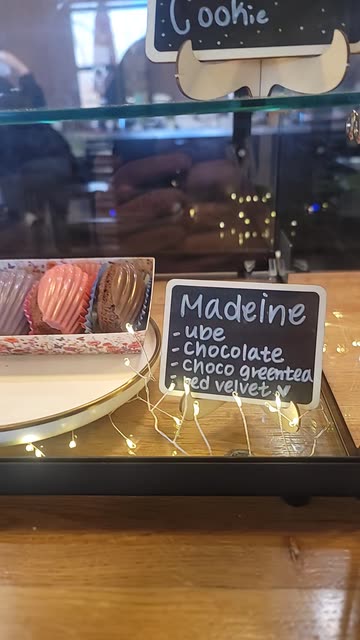 Cookie
Madeine
- ube
- Chocolate
- choco greentea
- red velvet ♥